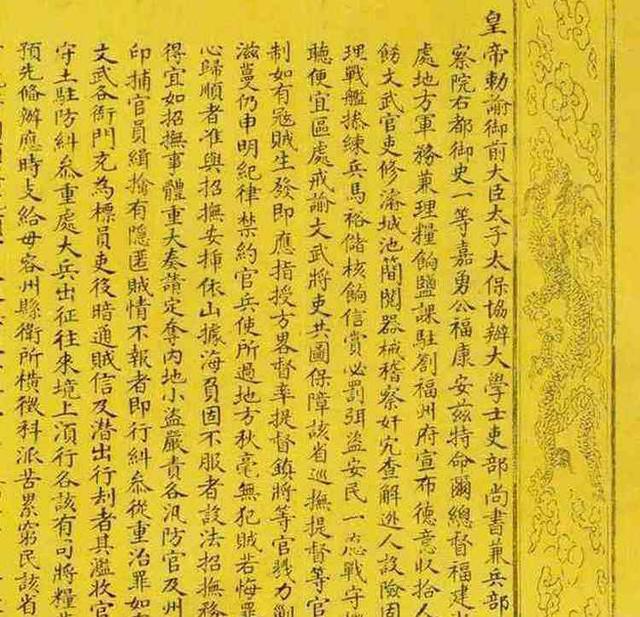 皇帝勅諭御前大臣太子太保協辦大學士吏部尚書兼兵部
察院右都御史一等嘉勇公福康安茲特命爾總督福建
處地方軍務兼理糧餉鹽課駐劄福州府宣布德意收拾人
飭文武官吏修濬城池簡閱器械稽察奸宄查解逃人設險固
理戰艦操練兵馬裕儲核餉信賞必罰弭盜安民一應戰守
聽便宜區處戒諭文武將吏共圖保障該省巡撫提督等官
制如有寇賊生發即應指授方畧督率提督鎮將等官戮力剿
滋蔓仍申明紀律禁約官兵使所過地方秋毫無犯賊若悔罪
心歸順者准與招撫安揷依山據海負固不服者設法招撫務
得宜如招撫事體重大奏請定奪內地小盜嚴責各汛防官及州
印捕官員緝擒有隱匿賊情不報者即行糾叅從重治罪如有
文武各衙門充為標員吏役暗通賊信及潛出行刦者其濫收官
守土駐防糾叅重處大兵出征往來境上湏行各該有司將糧
預先俻辦應時支給毋容州縣衛所橫徵科派苦累窮民該省